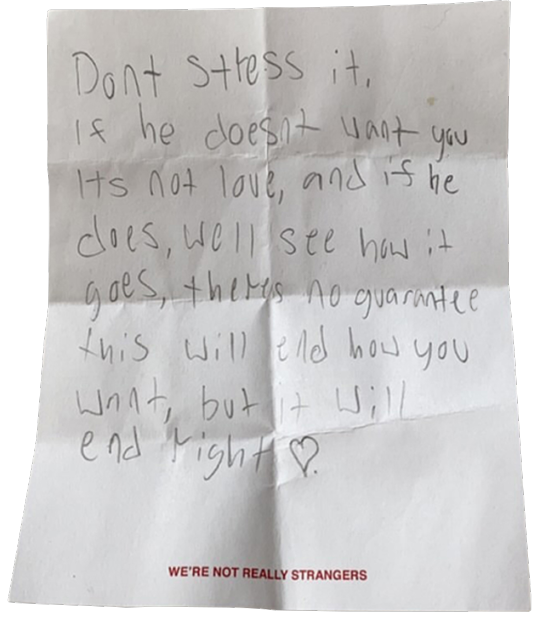 Dont stress it.
If he doesnt want you
Its not love, and if he
does, well see how it
goes, theres no guarantee
this will end how you
want, but it will
end right ♡.
WE'RE NOT REALLY STRANGERS